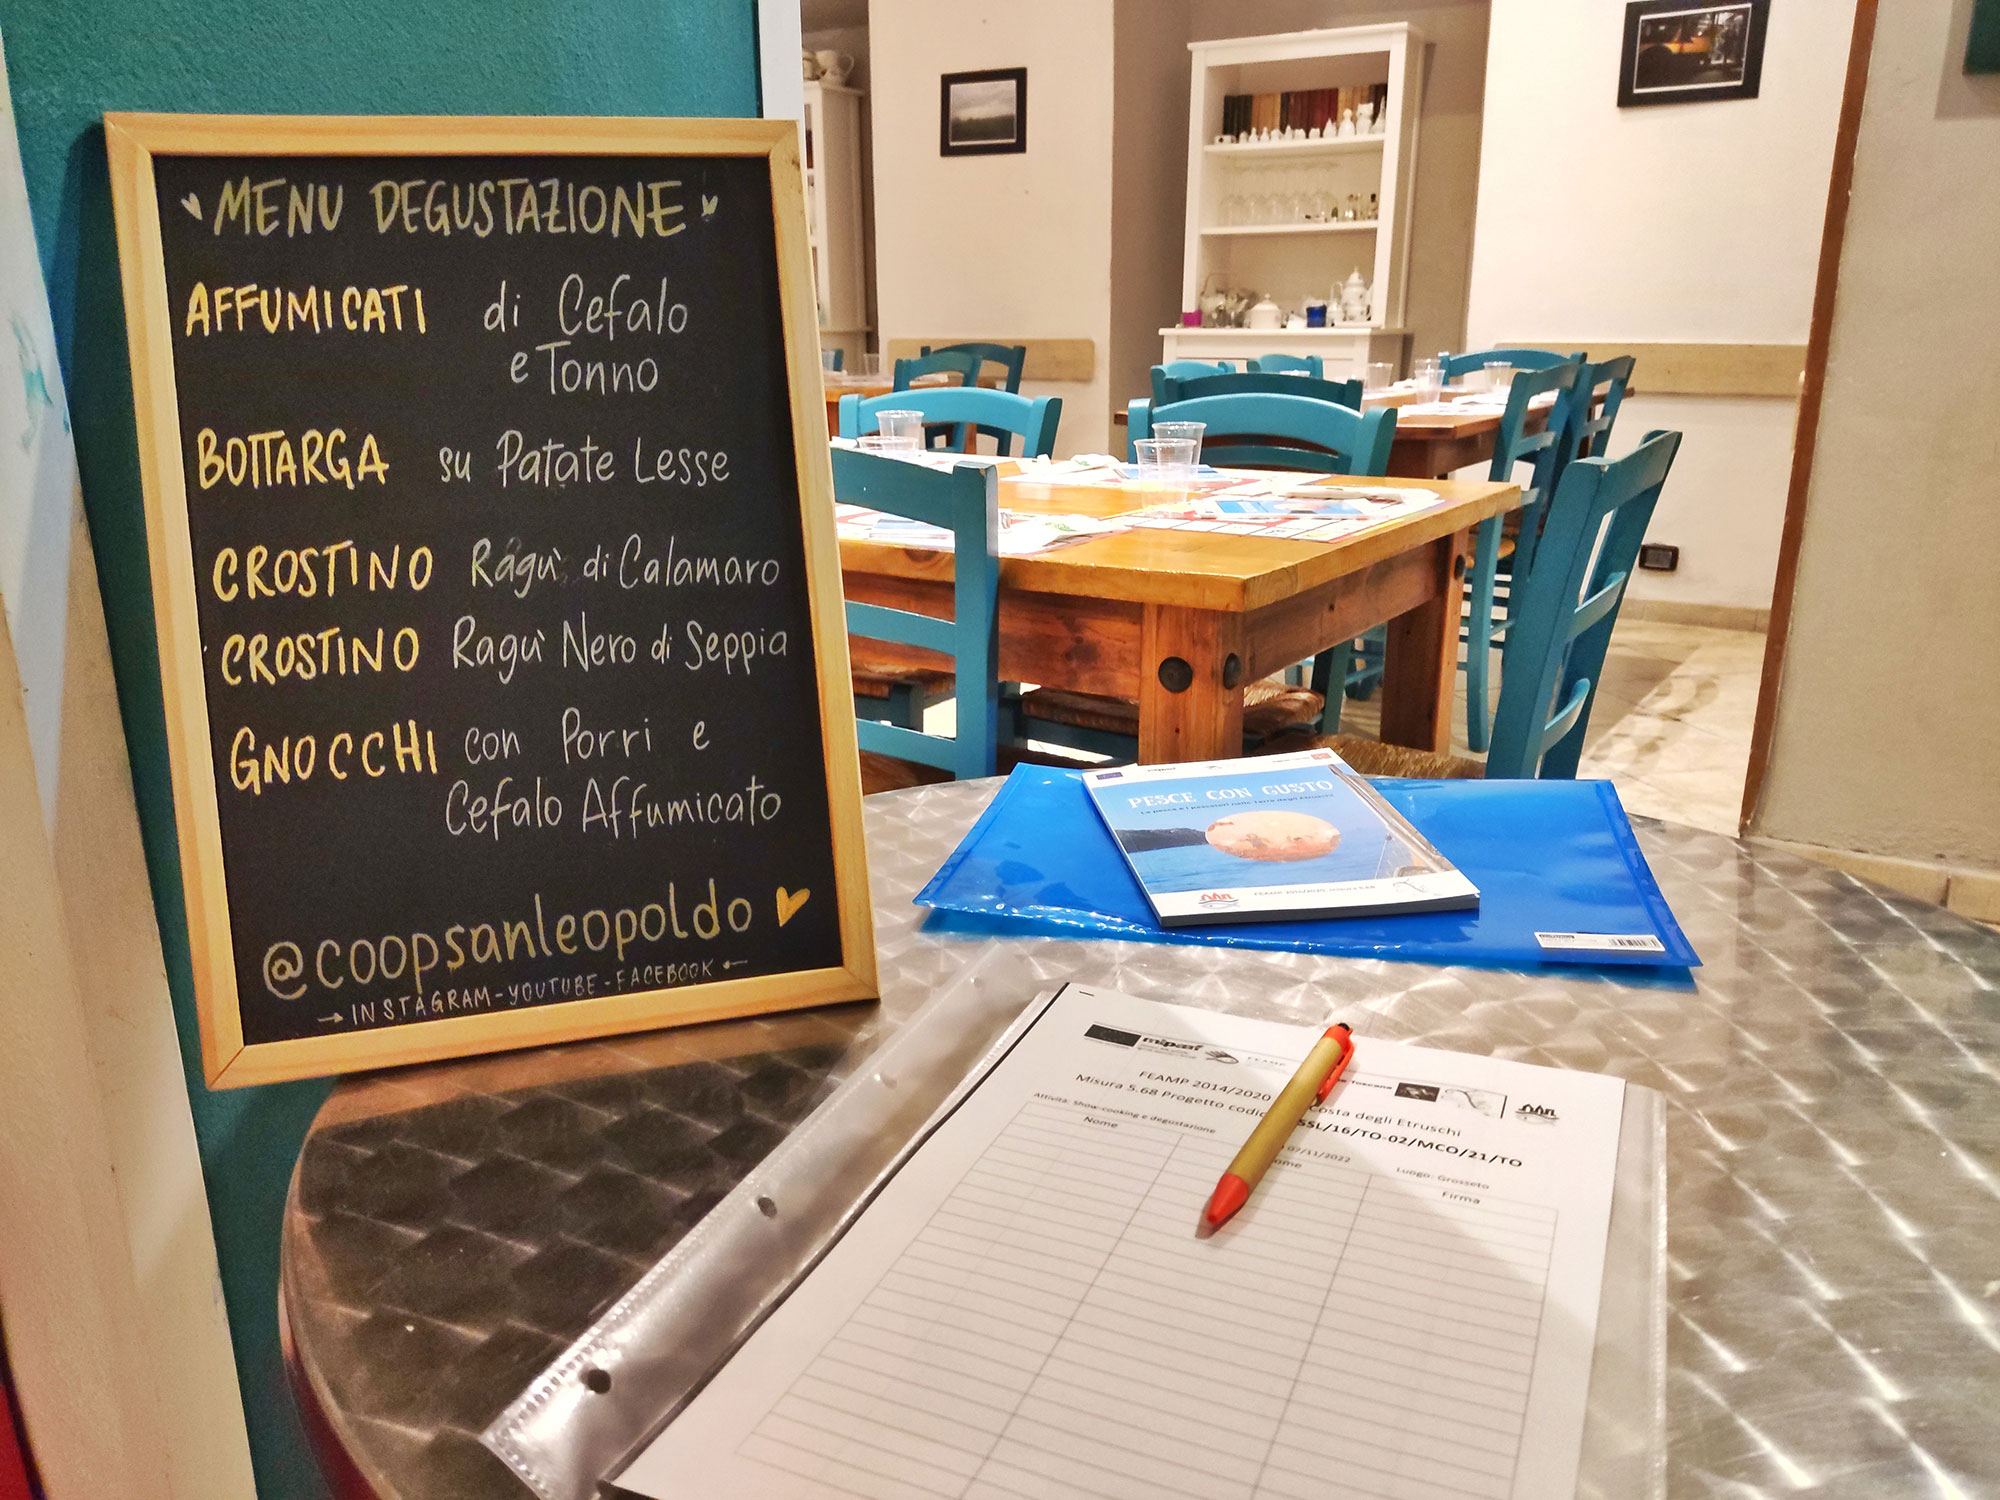 MENU DEGUSTAZIONE
AFFUMICATI di Cefalo
e Tonno
BOTTARGA su Patate Lesse
CROSTINO Ragù di Calamaro
CROSTINO Ragù Nero di Seppia
GNOCCHI con Porri e
Cefalo Affumicato
@coopsanleopoldo
→ INSTAGRAM-YOUTUBE-FACEBOOK ←
PESCE CON GUSTO
La pesca e i pescatori nelle Terre degli Etruschi
mipaaf
FEAMP
Toscana
FEAMP 2014/2020 Costa degli Etruschi
Misura 5.68 Progetto SSL/16/TO-02/MCO/21/TO
Attività: Show-cooking e degustazione 07/11/2022 Luogo: Grosseto
Nome Firma